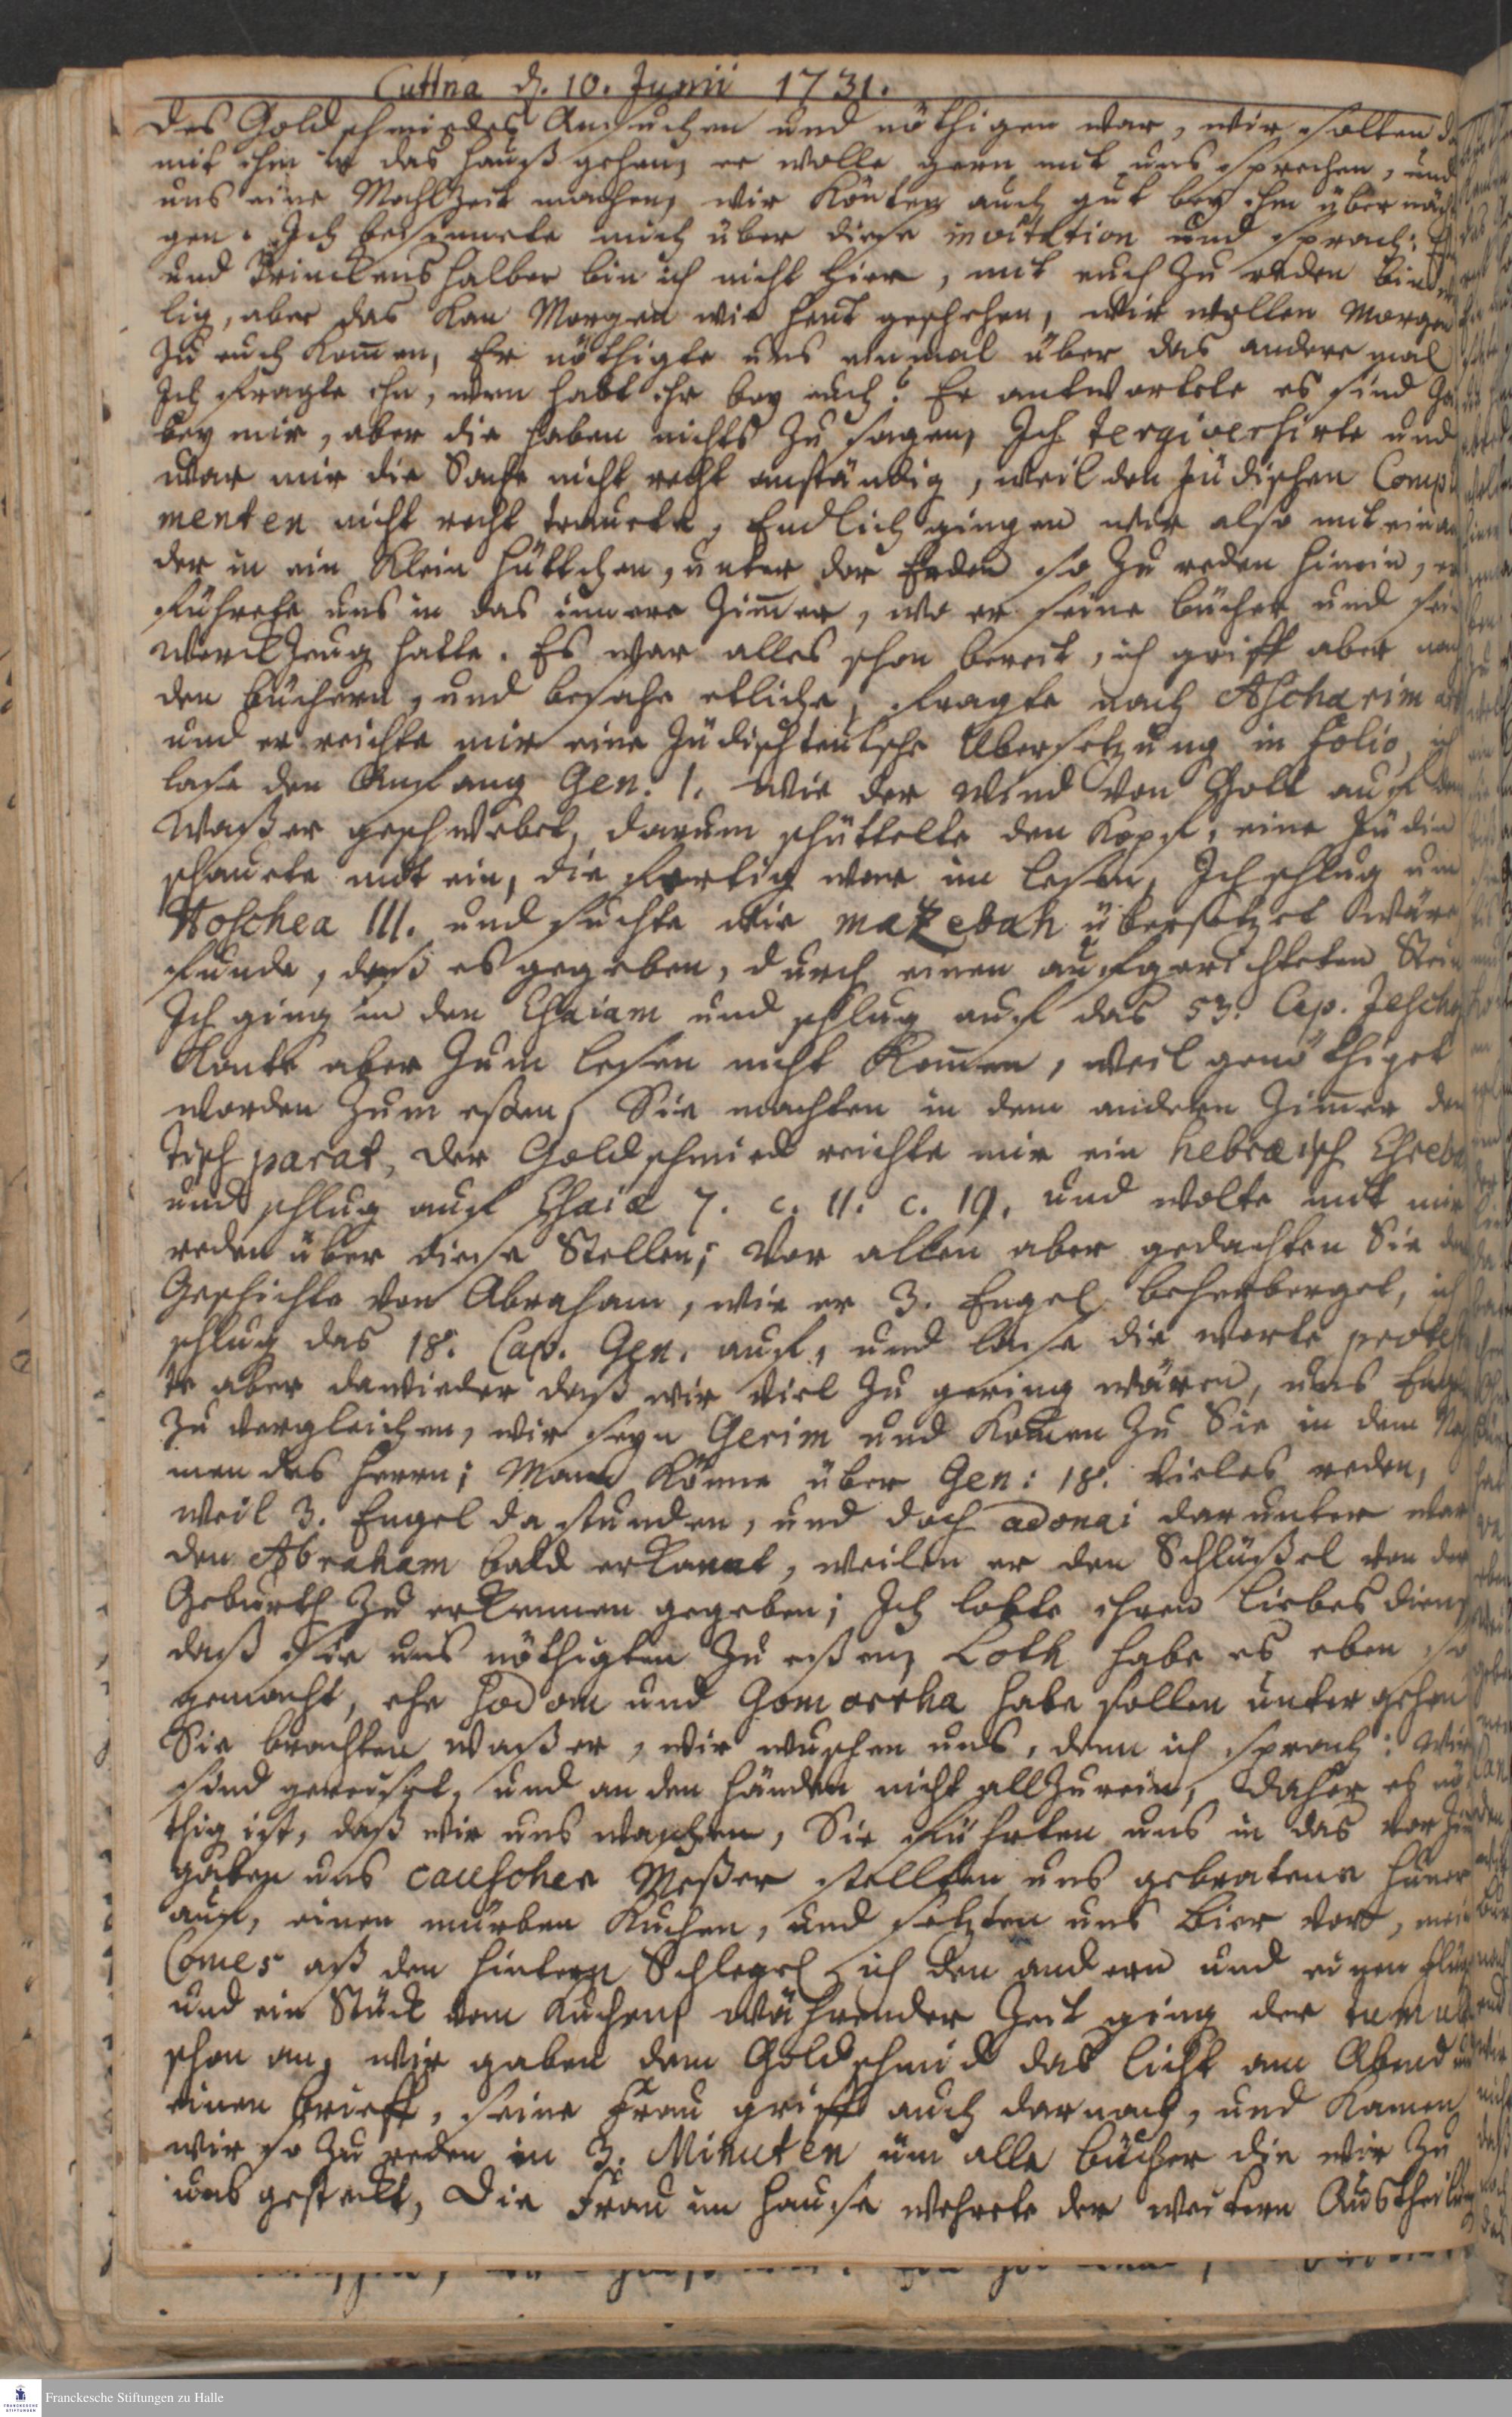 Cuttna d. 10. Junii 1731.
des Goldschmiedes Ansuchen und nöthigen war, wir solten
mit ihm in das Hauß gehen, er wolle gern mit uns sprechen, und
uns eine Mahlzeit machen, wir könten auch gut bey ihm übernäch
gen. Ich besinnete mich über diese invitation und sprach:
und Trinckens halber bin ich nicht hier, mit euch zu reden bin
lig, aber das kan Morgen wie heut geschehen, wir wollen Morgen
zu euch kommen, Er nöthigte uns einmal über das andere mal
Ich fragte ihn, wen habt ihr bey euch? Er antwortete es sind
bey mir, aber die haben nichts zu sagen, Ich tergiversirte und
war mir die Sache nicht recht anständig, weil den Jüdischen Comp
menten nicht recht trauete, Endlich gingen wir also mit einan
der in ein klein Hüttchen, unter der Erden so zu reden hinein, er
führete uns in das innere Zimmer, wo er seine bücher und sein
Werckzeug hatte. Es war alles schon bereit, ich griff aber nach
den büchern, und besahe etliche, fragte nach Ascharim
und er reichte mir eine Jüdischteutsche Übersetzung in folio, ich
lase den Anfang Gen. 1. wie der Wind von Gott auf dem
Waßer geschwebet, darum schüttelte den Kopf, eine Jüdin
schauete mit ein, die fertig war im lesen, Ich schlug um
Hoschea III. und suchte wie mazebah übersetzet wäre
funde, daß es gegeben, durch einen aufgerichteten Stein
Ich ging in den Esaiam und schlug auf das 53. Cap. Jescha
konte aber zum lesen nicht kommen, weil genöthiget
worden zum eßen, Sie machten in dem andern Zimmer den
Tisch parat, der Goldschmied reichte mir ein hebräisch
und schlug auf Esaiæ 7. c. 11. c. 19. und wolte mit mir
reden über diese Stellen; Vor allen aber gedachten Sie der
Geschichte von Abraham, wie er 3. Engel beherberget, ich
schlug das 18. Cap. Gen. auf, und lase die worte protest
te aber dawieder daß wir viel zu gering wären, uns Engeln
zu vergleichen, wir seyn Gerim und kommen zu Sie in dem Na
men des Herrn; Man könne über Gen: 18. vieles reden,
weil 3. Engel da stunden, und doch adonai darunter war
den Abraham bald erkannt, weilen er den Schlüßel von der
Geburth zu erkennen gegeben; Ich lobte ihren Liebes dienst
daß sie uns nöthigten zu eßen, Loth habe es eben so
gemacht, ehe Sodom und Gomorrha habe sollen untergehen
Sie brachten waßer, wir wuschen uns, denn ich sprach: Wir
sind gereiset, und an den händen nicht allzurein, daher es nö
thig ist, daß wir uns waschen, Sie führten uns in das vor
gaben uns causcher Meßer stellten uns gebratene hüner
auf, einen mürben Kuchen, und setzten uns Bier vor, mein
Comes aß den hintern Schlegel, ich den andern und einen
und ein Stück vom Kuchen, während der Zeit ging der tumult
schon an, wir gaben dem Goldschmid das licht am Abend und
einen brieff, seine Frau griff auch darnach, und kamen
wir so zu reden in 3. Minuten um alle bücher die wir zu
uns gesteckt, Die Frau im hause wehrete der weitern Austheilung
Franckesche Stiftungen zu Halle